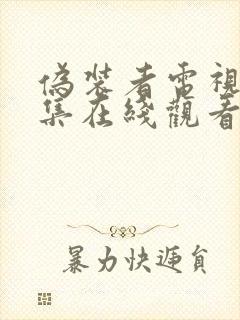 偽裝者電視
集在綫觀看
暴力快遞員